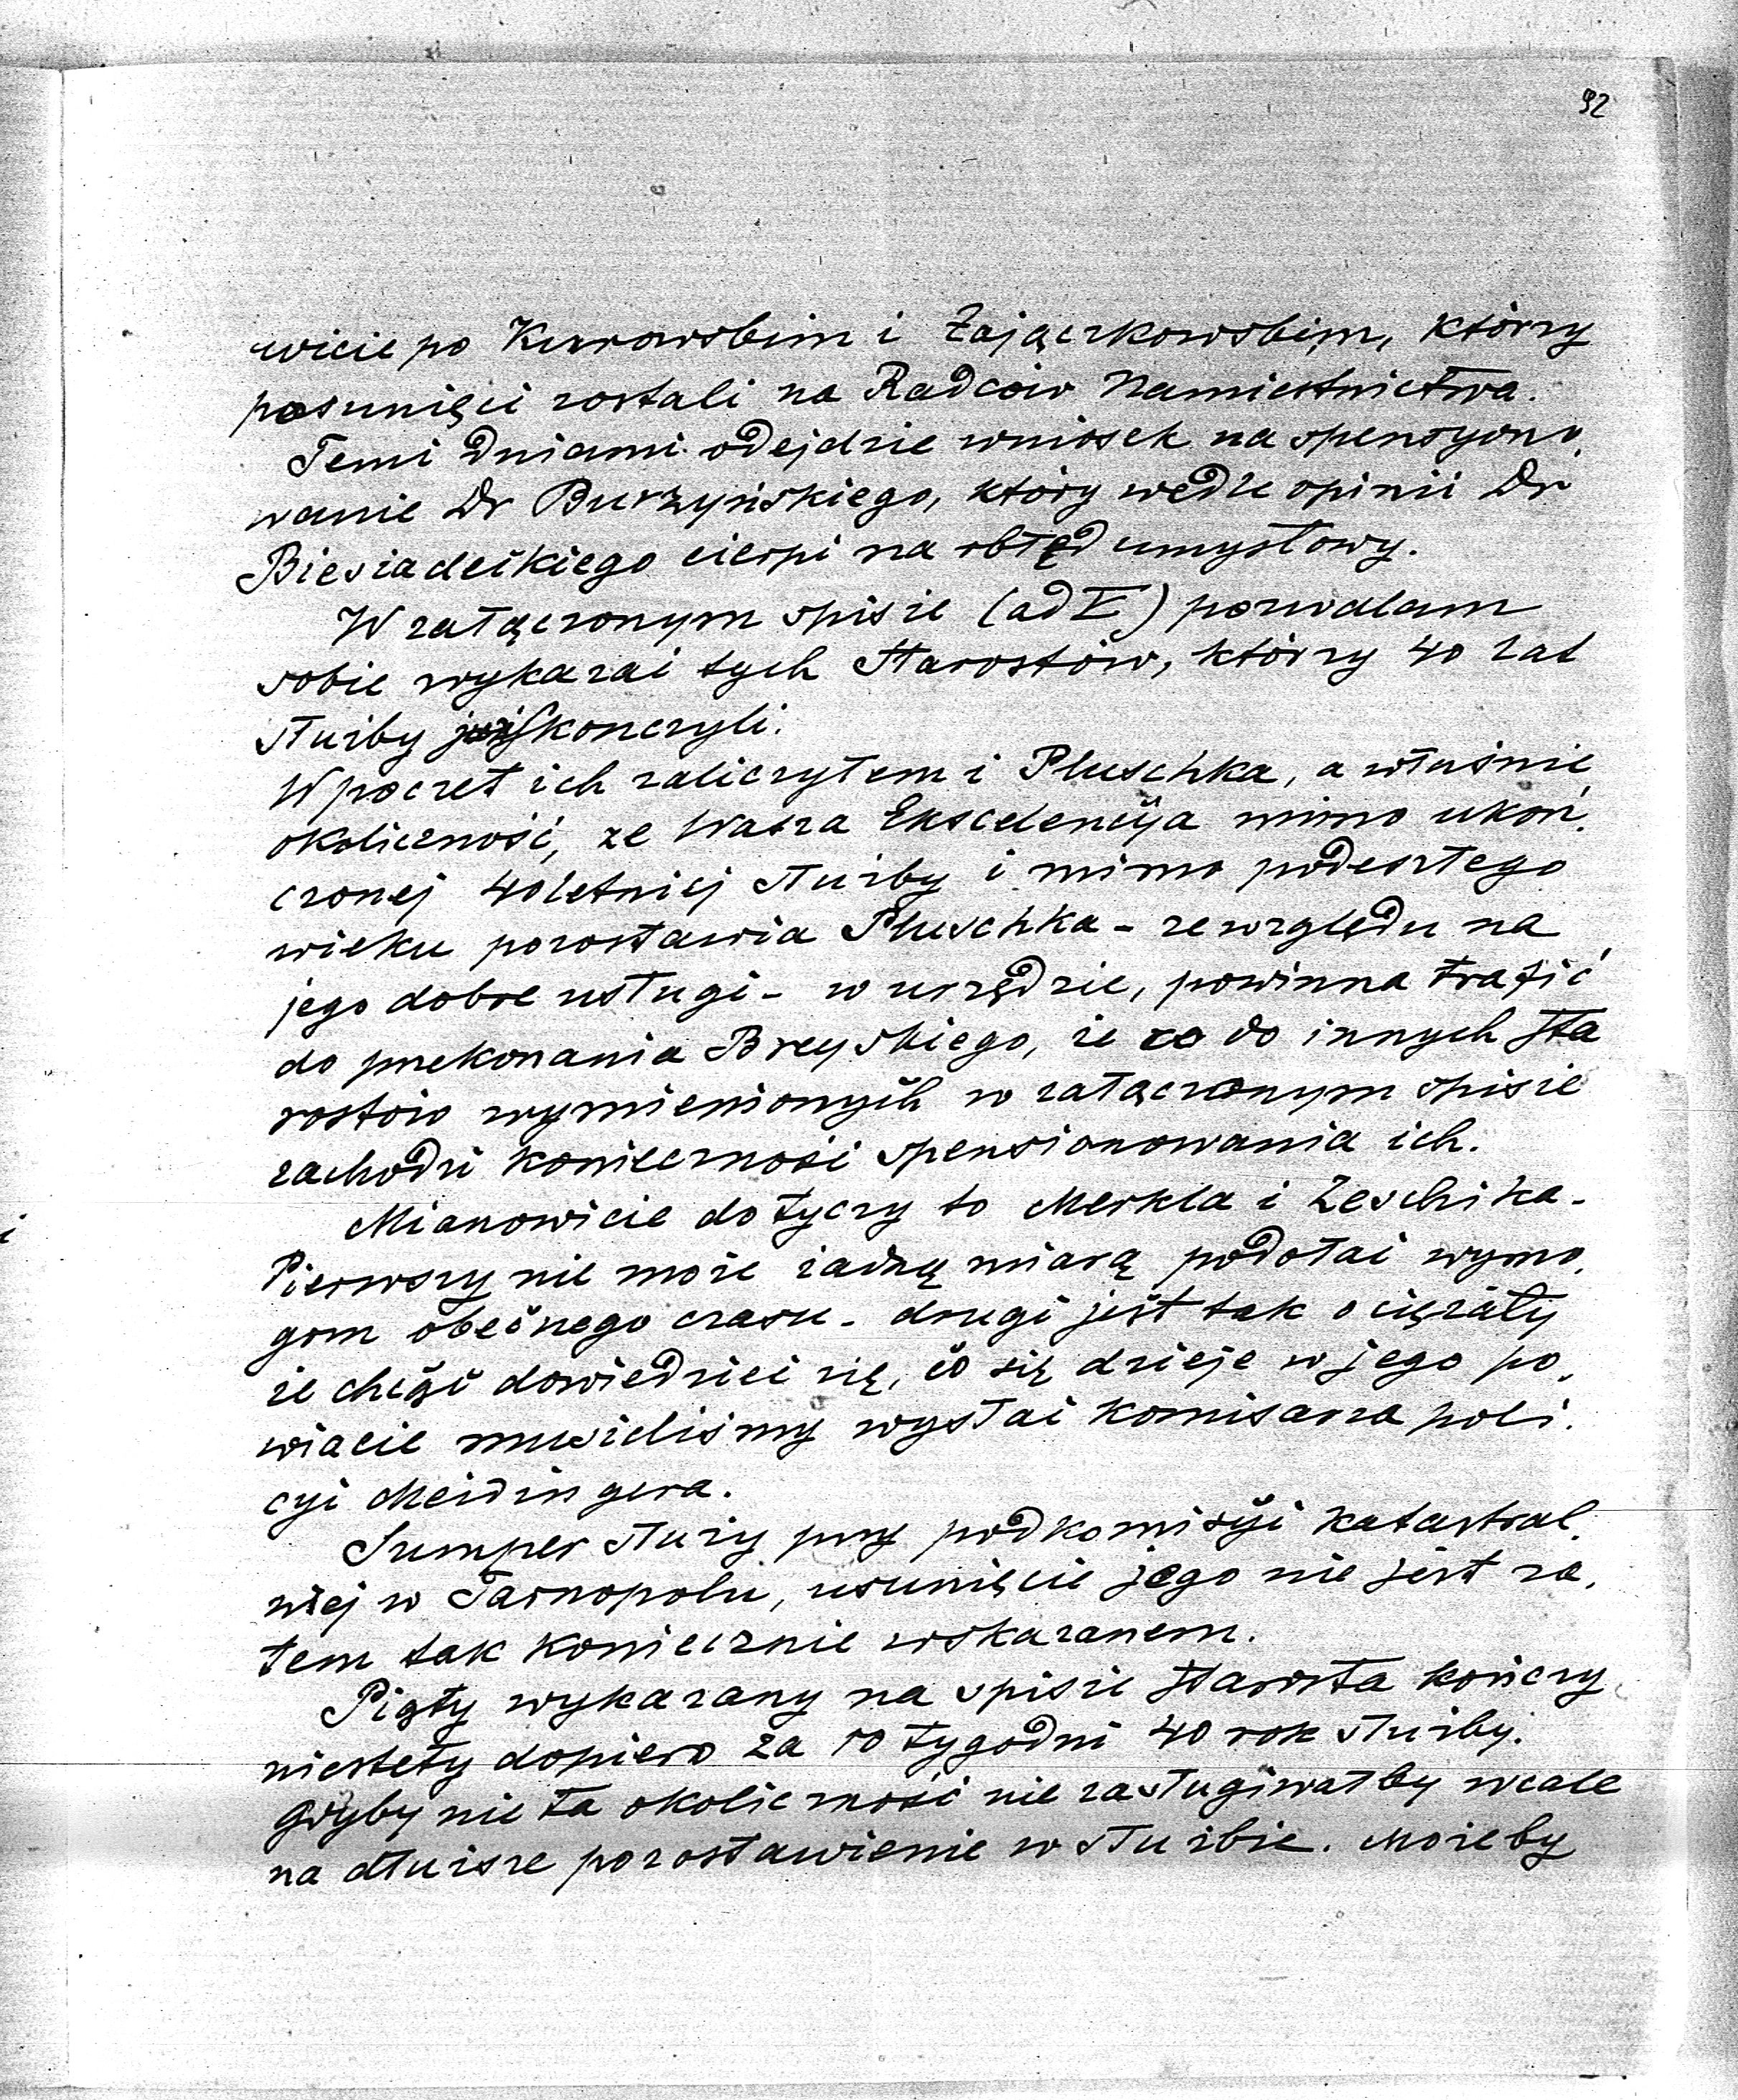 92
wicie po Kurowskim i Zajączkowskim, którzy
posunięci zostali na Radców Namiestnictwa.
Temi dniami odejdzie wniosek na spensyono-
wanie Dr Burzyńskiego, który wedle opinii Dr
Biesiadeckiego cierpi na obłęd umysłowy.
W załączonym spisie (ad I) pozwalam
sobie wykazać tych Starostów, którzy 40 lat
służby już skończyli.
W poczet ich zaliczyłem i Pluschka, a właśnie
okoliczność, że Wasza Ekscelencija mimo ukoń-
czonej 40letniej służby i mimo podeszłego
wieku pozostawia Pluschka - ze względu na
jego dobre usługi - w urzędzie, powinna trafić
do przekonania Breyskiego, że co do innych Sta
rostów wymienionych w załączonym spisie
zachodzi konieczność spensionowania ich.
Mianowicie dotyczy to Merkla i Zeschika.
Pierwszy nie może żadną miarą podołać wymo-
gom obecnego czasu - drugi jest tak ociężały
że chcąc dowiedzieć się, co się dzieje w jego po-
wiacie musieliśmy wysłać komisarza poli-
cyi Meidingera.
Sumper służy przy podkomisyi katastral-
nej w Tarnopolu, usunięcie jego nie jest za-
tem tak koniecznie wskazanem.
Piąty wykazany na spisie Starosta kończy
niestety dopiero za 10 tygodni 40 rok służby.
gdyby nie ta okoliczność nie zasługiwałby wcale
na dłuższe pozostawienie w służbie. Możeby
i